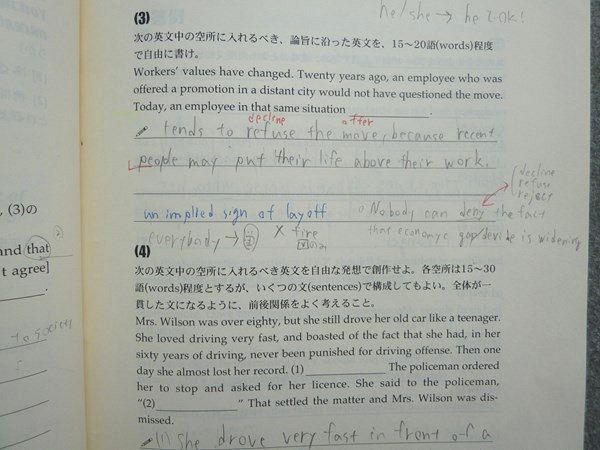 he/she → he でOK!
(3)
次の英文中の空所に入れるべき、論旨に沿った英文を、15~20語(words)程度
で自由に書け。
Workers' values have changed. Twenty years ago, an employee who was
offered a promotion in a distant city would not have questioned the move.
Today, an employee in that same situation
decline offer
tends to refuse the move, because recent
people may put their life above their work.
decline
refuse
reject
an implied sign of layoff
Nobody can deny the fact
that economic gap/devide is widening
everybody →
× fire
(3)の
and that
t agree]
to society
(4)
次の英文中の空所に入れるべき英文を自由な発想で創作せよ。各空所は15~30
語(words)程度とするが、いくつの文(sentences)で構成してもよい。全体が一
貫した文になるように、前後関係をよく考えること。
Mrs. Wilson was over eighty, but she still drove her old car like a teenager.
She loved driving very fast, and boasted of the fact that she had, in her
sixty years of driving, never been punished for driving offense. Then one
day she almost lost her record. (1) The policeman ordered
her to stop and asked for her licence. She said to the policeman,
"(2) " That settled the matter and Mrs. Wilson was dis-
missed.
(1) She drove very fast in front of a